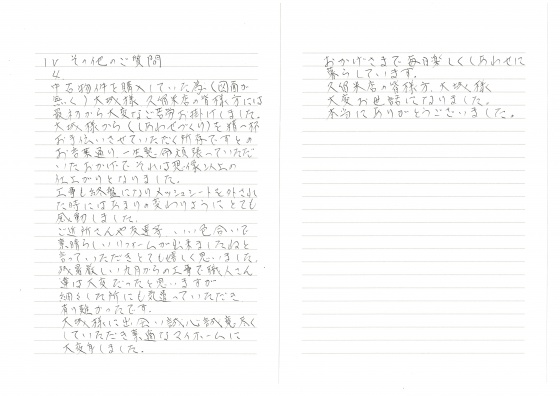 IV その他のご質問
4.
中古物件を購入していた為(図面が
無く)大城様、久留米店の皆様方には
最初から大変なご苦労お掛けしました。
大城様から(しあわせづくり)を精一杯
お手伝いさせていただく所存ですとの
お言葉通り一生懸命頑張っていただ
いたおかげで それは想像以上の
仕上がりとなりました。
工事も終盤になりメッシュシートを外された
た時にはあまりの変わりようにとても
感動しました。
ご近所さんや友達等、いい色合いで
素晴らしいリフォームが出来ましたねと
言っていただきとても嬉しく思いました。
残暑厳しい九月からの工事で職人さん
達は大変だったと思いますが
細々した所にも気遣っていただき
有り難かったです。
大城様に出会い誠心誠意尽く
していただき素適なマイホームに
大変身しました。
おかげさまで毎日楽しくしあわせに
暮らしています。
久留米店の皆様方、大城様
大変お世話になりました。
本当にありがとうございました。